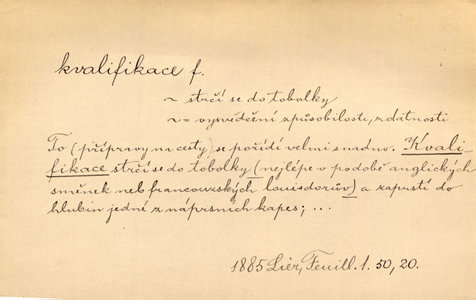 kvalifikace f.
~ strčí se do tobolky
~ = vysvědčení způsobilosti, zdatnosti
To (přípravy na cesty) se pořídí velmi snadno. Kvali-
fikace strčí se do tobolky (nejlépe v podobě anglických
směnek neb francouzských louisdorův) a zapustí do
hlubin jedné z náprsních kapes; ...
1885 Lier, Feuill. 1. 50, 20.